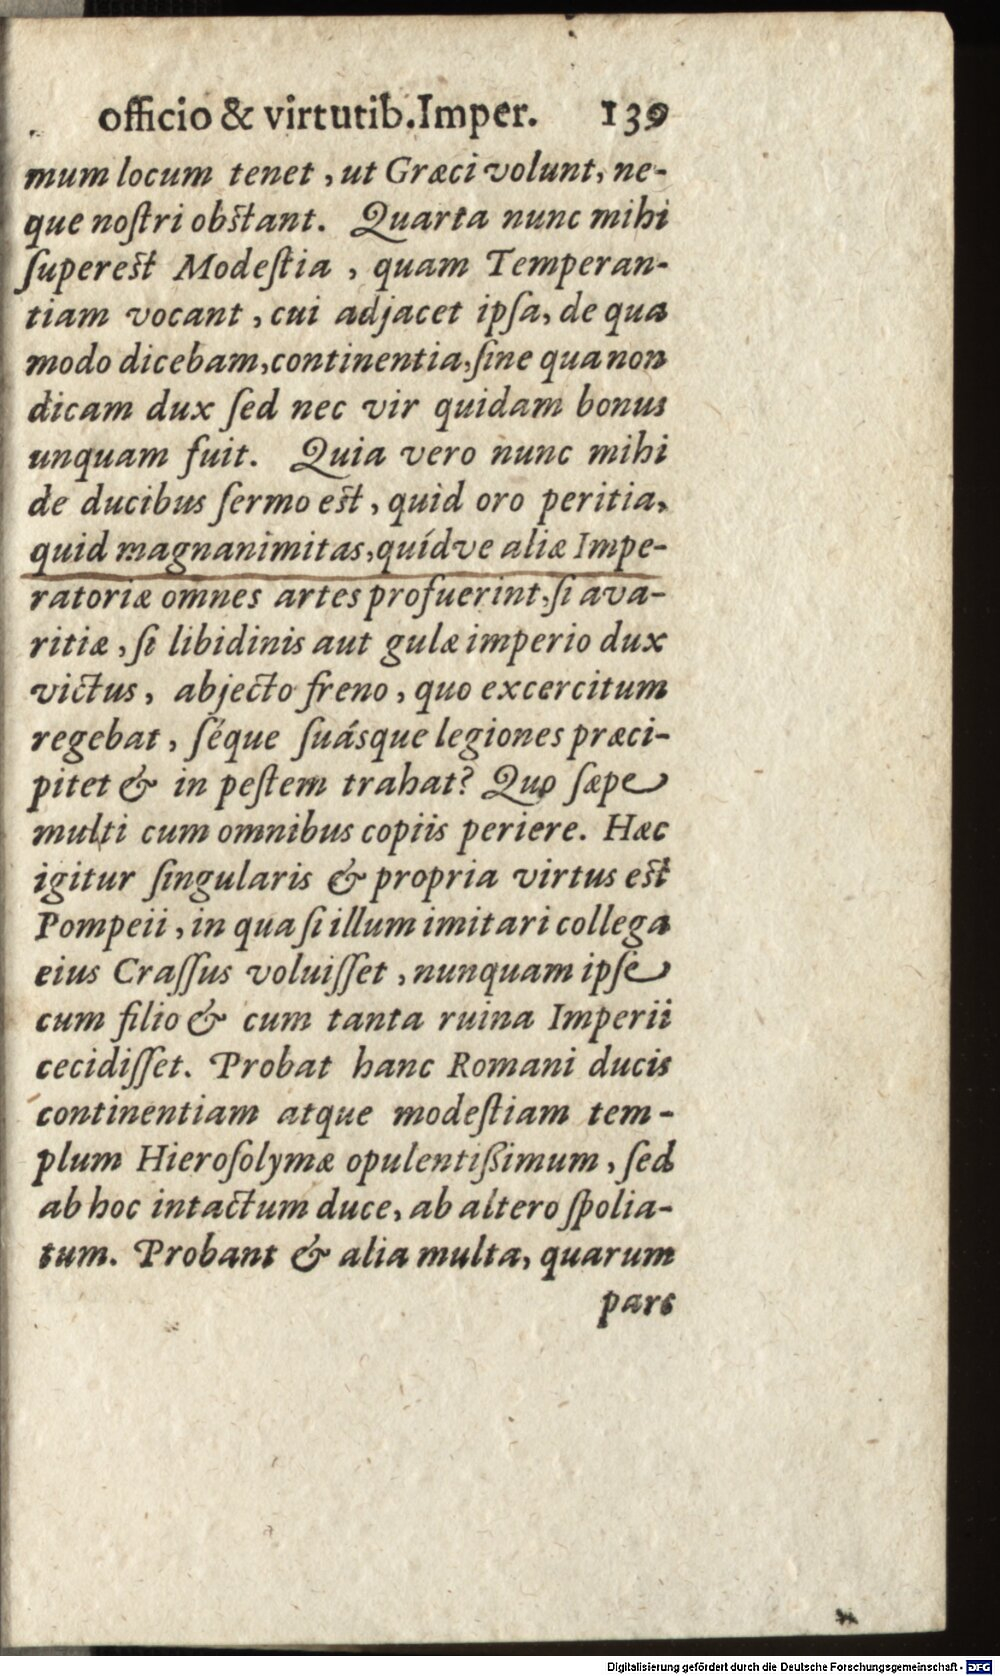 officio & virtutib.Imper. 139
mum locum tenet, ut Græci volunt, ne-
que noſtri obſtant. Quarta nunc mihi
ſupereſt Modeſtia, quam Temperan-
tiam vocant, cui adjacet ipſa, de qua
modo dicebam, continentia, ſine qua non
dicam dux ſed nec vir quidam bonus
unquam fuit. Quia vero nunc mihi
de ducibus ſermo eſt, quid oro peritia,
quid magnanimitas, quídve aliæ Impe-
ratoriæ omnes artes profuerint, ſi ava-
ritiæ, ſi libidinis aut gulæ imperio dux
victus, abjecto freno, quo excercitum
regebat, ſéque ſuásque legiones præci-
pitet & in peſtem trahat? Quo ſæpe
multi cum omnibus copiis periere. Hæc
igitur ſingularis & propria virtus eſt
Pompeii, in qua ſi illum imitari collega
eius Craſſus voluiſſet, nunquam ipſe
cum filio & cum tanta ruina Imperii
cecidiſſet. Probat hanc Romani ducis
continentiam atque modeſtiam tem-
plum Hieroſolymæ opulentiſsimum, ſed
ab hoc intactum duce, ab altero ſpolia-
tum. Probant & alia multa, quarum
pars
Digitalisierung gefördert durch die Deutsche Forschungsgemeinschaft - DFG